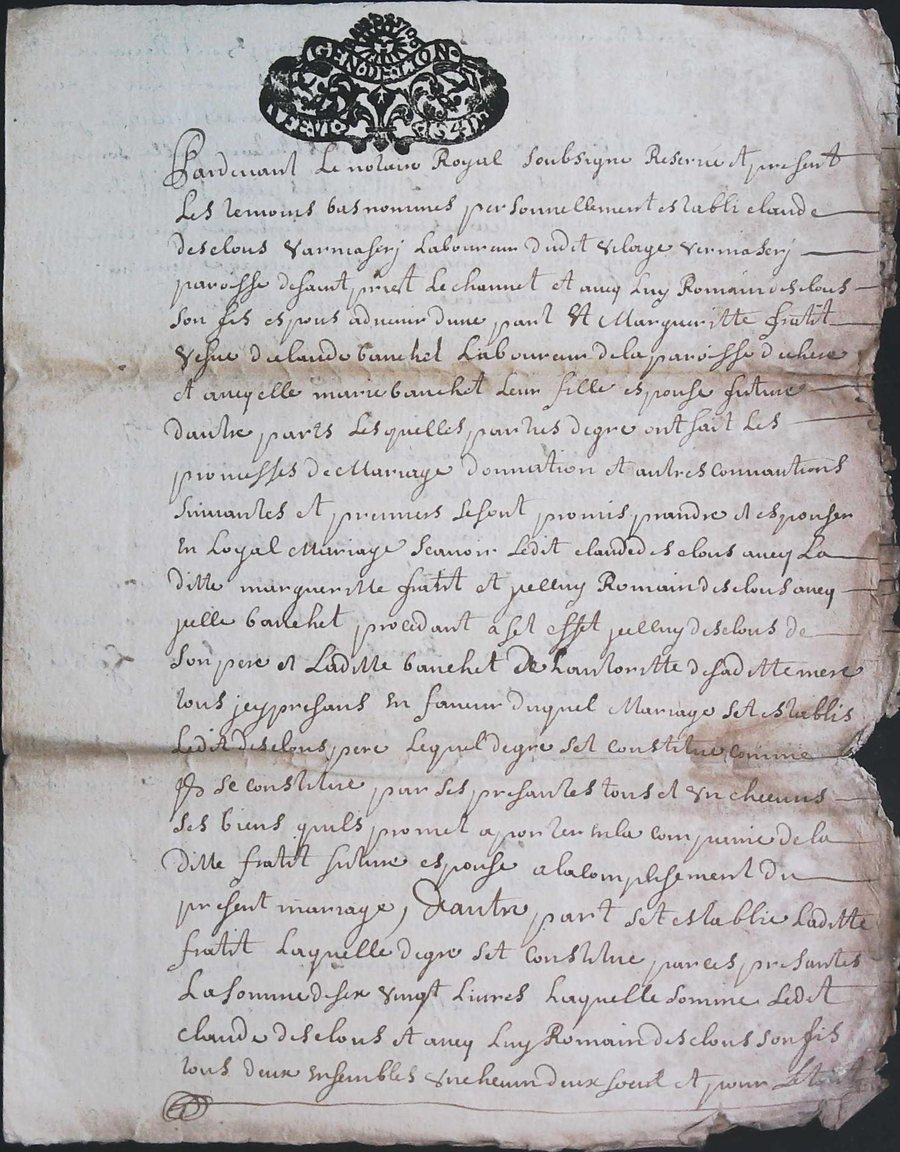 GEN DE LYON
Pardevant Le notaire Royal Soubsigne Reservé et present
Les temoins bas nommes personnellement establi claude
desclous varmaserj Laboureur dudit vilage vermaserj
paroisse de saint priest Le channet et avecq Luy Romain desclous
son fis espous advenir dune part Et Margueritte fratit
vefve de claude banchet Laboureur de la paroisse de chere
et avecq elle marie banchet Leur fille espouse future
dautre parts Lesquelles parties de gre ont fait Les
promesses de Mariage donnation et autres convantions
suivantes et premiers se sont promis prandre et espouser
en Loyal Mariage scavoir Ledit claude desclous avecq La
ditte margueritte fratit et jcelluy Romain desclous avecq
jcelle banchet procedant a set effet jcelluy desclous de
son pere et Laditte banchet de Lautoritte de sa ditte mere
tous jcy presans en faveur duquel Mariage set establis
Ledit desclous pere Lequel de gre set constitue comme
se constitue par ses presantes tous et un checuns
ses biens quils promet aporter en la compenie de la
ditte fratit future espouse a lacomplisement du
present mariage, Dautre part set establie Laditte
fratit Laquelle de gre set constitue par ces presantes
La somme de six vingt Livres Laquelle somme Ledit
claude desclous et avecq Luy Romain desclous son fis
tous deux ensembles un checun deux seul et pour Le tout